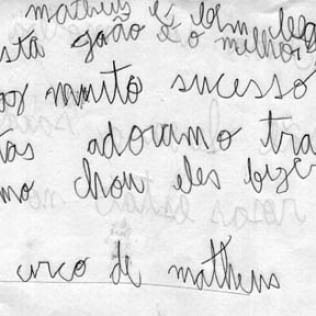 matheus e
sta joão é o melhor
as muito sucesso
tas adoramo tra
mo chou eles bizer
circo de matheus